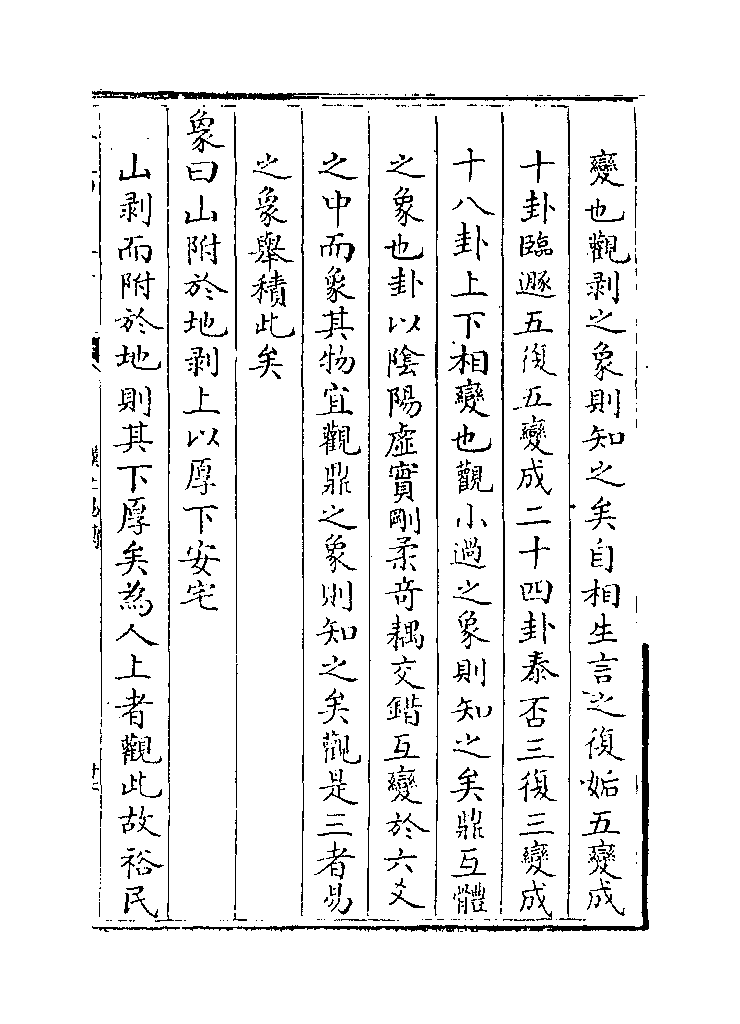 變也觀剥之象則知之矣自相生言之復姤五變成
十卦臨遯五復五變成二十四卦泰否三復三變成
十八卦上下相變也觀小過之象則知之矣鼎互體
之象也卦以陰陽虚實剛柔竒耦交錯互變於六爻
之中而象其物宜觀鼎之象則知之矣觀是三者易
之象舉積此矣
象曰山附於地剥上以厚下安宅
山剥而附於地則其下厚矣為人上者觀此故裕民